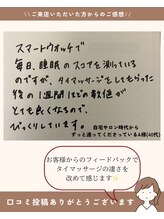 ご来店いただいた方からのご感想
スマートウォッチで
毎日、睡眠のスコアを測っている
のですが、タイマッサージをしてもらった
後の1週間ほどの数値が
とても良くなるので、
びっくりしています。
自宅サロン時代から
ずっと通ってくださっているA様(40代)
お客様からのフィードバックで
タイマッサージの凄さを
改めて感じます✨
口コミ投稿ありがとうございます